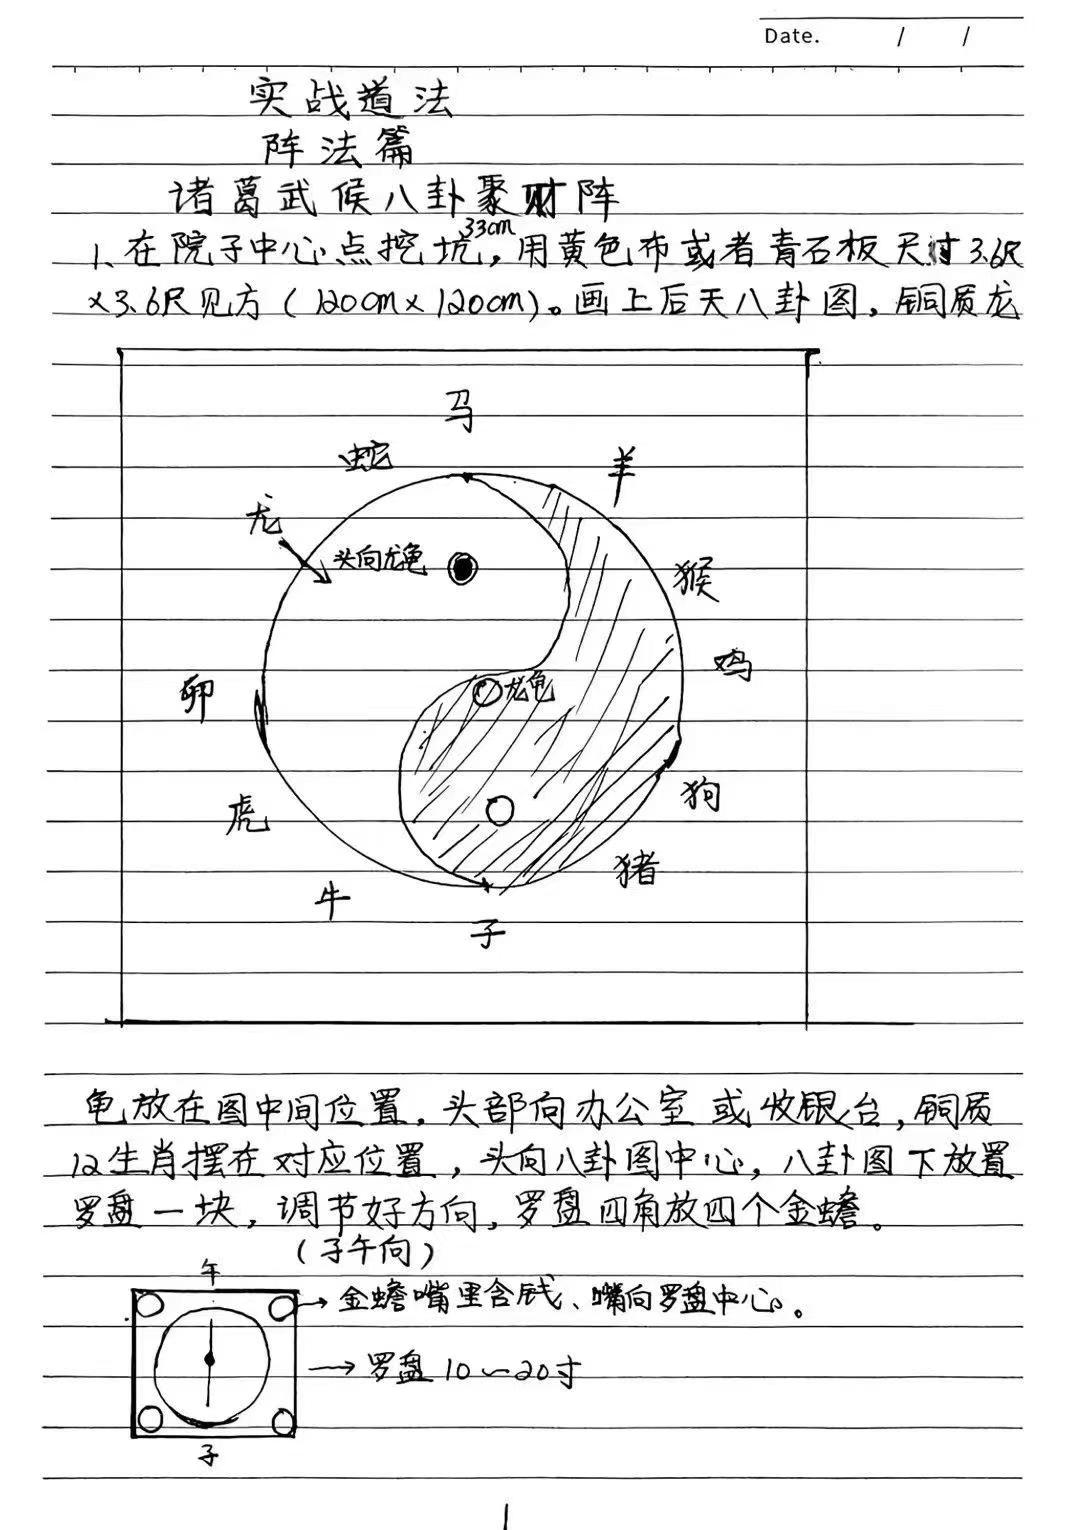 Date. / /
实战道法
阵法篇
诸葛武候八卦聚财阵
33cm
1、在院子中心点挖坑，用黄色布或者青石板尺寸3.6尺
×3.6尺见方（120cm×120cm)。画上后天八卦图，铜质龙
马
蛇
羊
龙
头向龙龟
猴
鸡
龙龟
卯
狗
虎
猪
牛
子
龟放在图中间位置，头部向办公室或收银台，铜质
12生肖摆在对应位置，头向八卦图中心，八卦图下放置
罗盘一块，调节好方向，罗盘四角放四个金蟾。
（子午向）
午
→金蟾嘴里含钱、嘴向罗盘中心。
→罗盘10~20寸
子
1